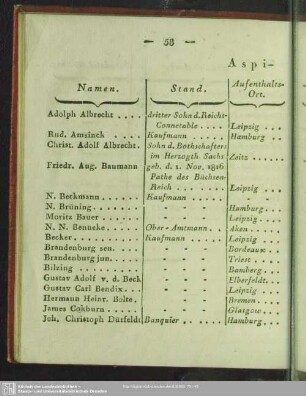 — 58 —
Aspi-
Namen. Stand. Aufenthalts-
Ort.
Adolph Albrecht .... dritter Sohn d. Reichs-
Connetable .... Leipzig ...
Rud. Amsinck .... Kaufmann .... Hamburg ..
Christ. Adolf Albrecht. Sohn d. Bothschafters
im Herzogth. Sachs Zeitz ......
Friedr. Aug. Baumann geb. d. 1. Nov. 1816
Pathe des Büchsen-
Reich ....... Leipzig ...
N. Beckmann ...... Kaufmann .... -
N. Brüning ....... - - Hamburg ...
Moritz Bauer ...... - - Leipzig ...
N. N. Benneke ..... Ober-Amtmann .. Aken ....
Becker ......... Kaufmann .... Leipzig ...
Brandenburg sen. ... - - Bordeaux ..
Brandenburg jun. ... - - Triest ...
Bilzing ........ - - Bamberg ...
Gustav Adolf v. d. Beck - - Elberfeldt...
Gustav Carl Bendix ... - - Leipzig ...
Hermann Heinr. Bolte. - - Bremen ....
James Cohburn ..... - - Glasgow ...
Joh. Christoph Dütfelds Banquier ..... Hamburg ...